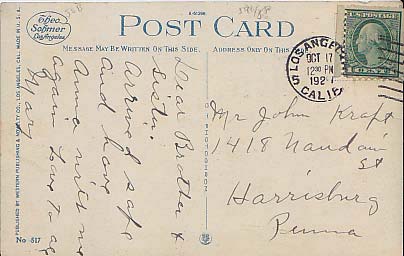 Theo. Sohmer
Los Angeles
POST CARD
MESSAGE MAY BE WRITTEN ON THIS SIDE.
ADDRESS ONLY ON THIS SIDE
PUBLISHED BY WESTERN PUBLISHING & NOVELTY CO., LOS ANGELES, CAL. MADE IN U.S.A.
No 517
Dear Brother &
Sister.
Arrived safe
and have
Anna with me
again Love to all
Mary
LOS ANGELES
OCT 17
12 30 PM
192
CALIF.
U.S. POSTAGE
CENTS
Mr John Kraft
1418 Naudain
St
Harrisburg
Penna